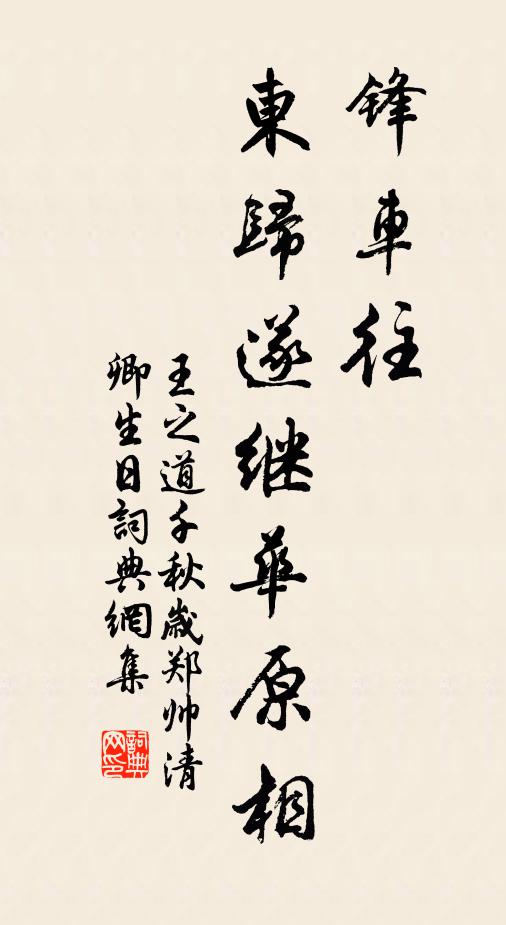 鋒車往
東歸遂继華原相
王之道千秋歲郑帅清
卿生日詞典網集
詞典
网印